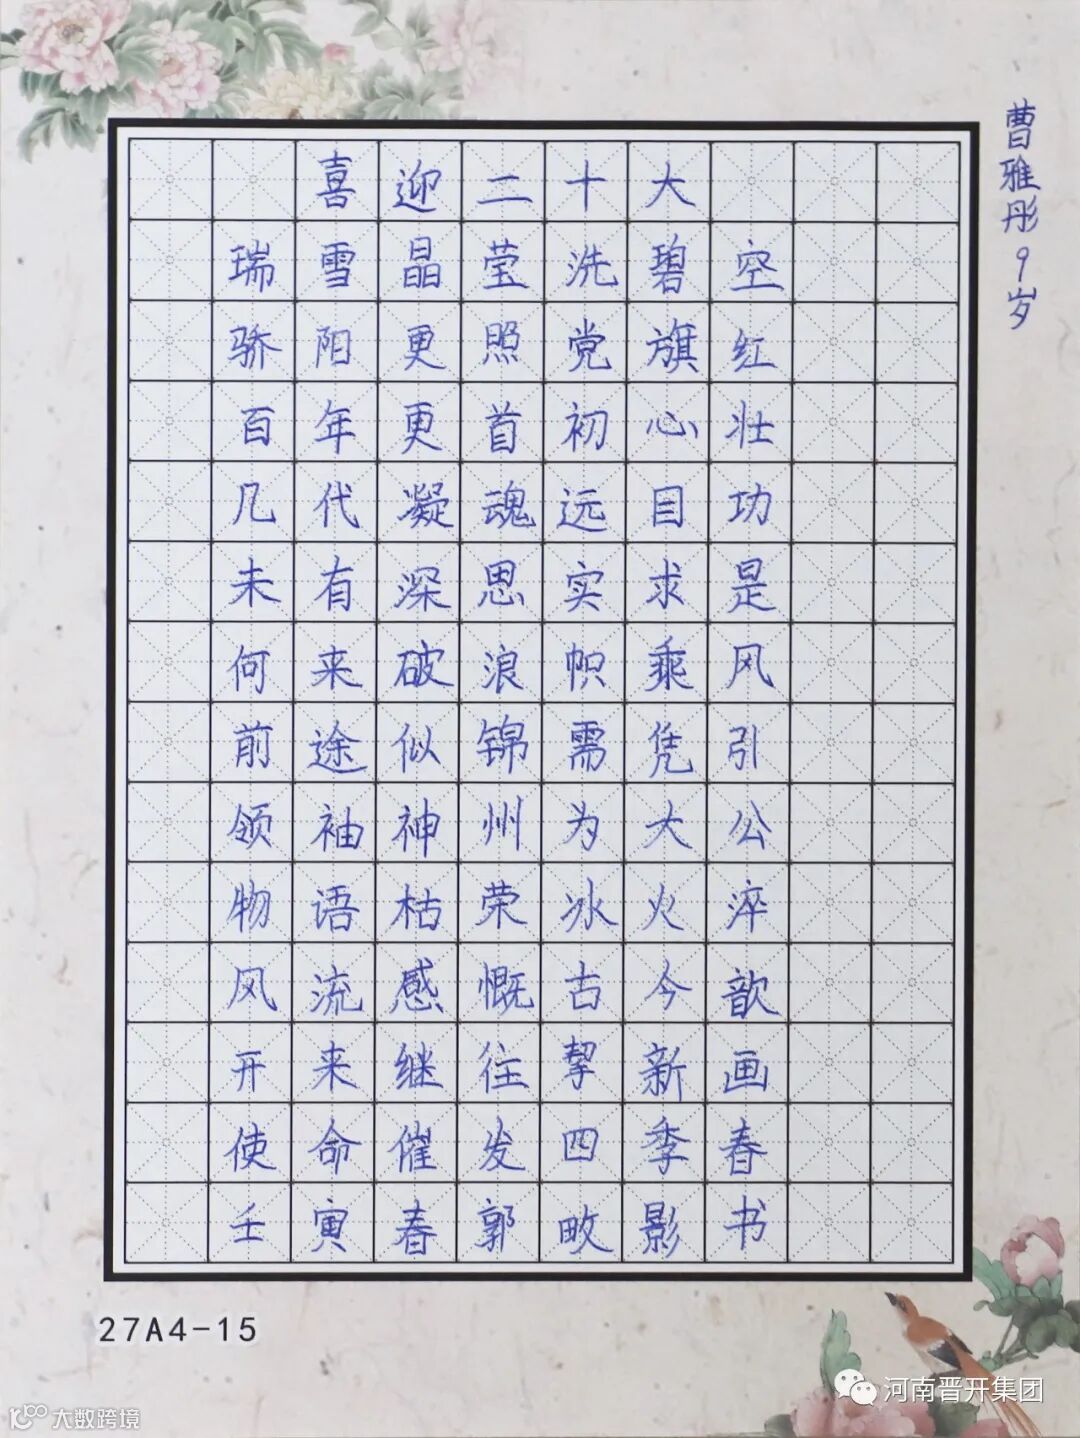 喜迎二十大
瑞雪晶莹洗碧空
骄阳更照党旗红
百年更首初心壮
几代凝魂远目功
未有深思实求是
何来破浪帜乘风
前途似锦需凭引
领袖神州为大公
物语枯荣冰火淬
风流感慨古今歆
开来继往挈新画
使命催发四季春
壬寅春郭畋影书
曹雅彤9岁
27A4-15
河南晋开集团
大数跨境